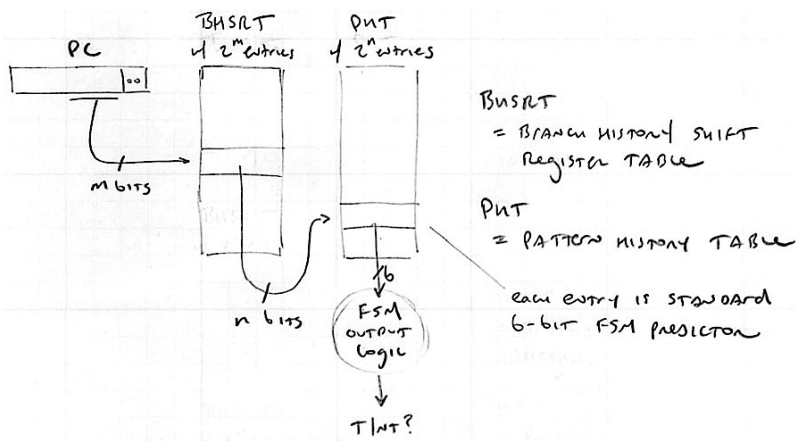 BHSRT
w/ 2^m entries
PHT
w/ 2^n entries
PC
00
m bits
n bits
6
FSM
OUTPUT
Logic
T/NT?
BHSRT
= BRANCH HISTORY SHIFT
REGISTER TABLE
PHT
= PATTERN HISTORY TABLE
each entry is STANDARD
6-bit FSM PREDICTOR